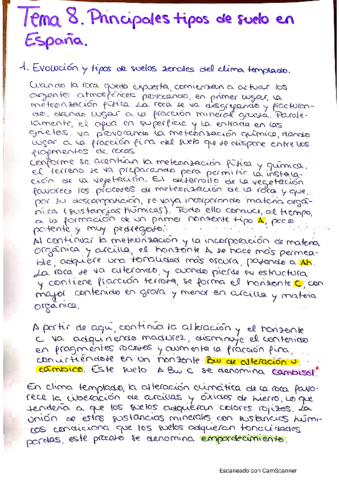 Tema 8. Principales tipos de suelo en
España.
1. Evolución y tipos de suelos zonales del clima templado.
Cuando la roca queda expuesta, comienzan a actuar los
agentes atmosféricos provocando, en primer lugar, la
meteorización física. La roca se va disgregando y fracturan-
do, dando lugar a la fracción mineral gruesa. Parale-
lamente, el agua en superficie y la entrada en las
grietas, va provocando la meteorización química, dando
lugar a la fracción fina del suelo que se dispone entre los
fragmentos de rocas.
Conforme se acentúan la meteorización física y química,
el terreno se va preparando para permitir la instala-
ción de la vegetación. El desarrollo de la vegetación
favorece los procesos de meteorización de la roca y que,
por su descomposición, se vaya incorporando materia orgá-
nica (sustancias húmicas). Todo ello conduce, al tiempo,
a la formación de un primer horizonte tipo A, poco
potente y muy pedregoso.
Al continuar la meteorización y la incorporación de materia
orgánica y arcilla, el horizonte A se hace más permea-
ble, adquiere una tonalidad más oscura, pasando a Ah.
La roca se va alterando, y cuando pierde su estructura
y contiene fracción terrosa, se forma el horizonte C, con
mayor contenido en grava y menor en arcilla y materia
orgánica.
A partir de aquí, continúa la alteración y el horizonte
C va adquiriendo madurez, disminuye el contenido
en fragmentos rocosos y aumenta la fracción fina,
convirtiéndose en un horizonte Bw de alteración o
cámbico. Este suelo A Bw C se denomina cambisol.
En clima templado, la alteración climática de la roca favo-
rece la liberación de arcillas y óxidos de hierro, lo que
tendería a que los suelos adquieran colores rojizos. La
unión de estas sustancias minerales con sustancias húmi-
cas condiciona que los suelos adquieran tonalidades
pardas, este proceso se denomina empardecimiento.
Escaneado con CamScanner